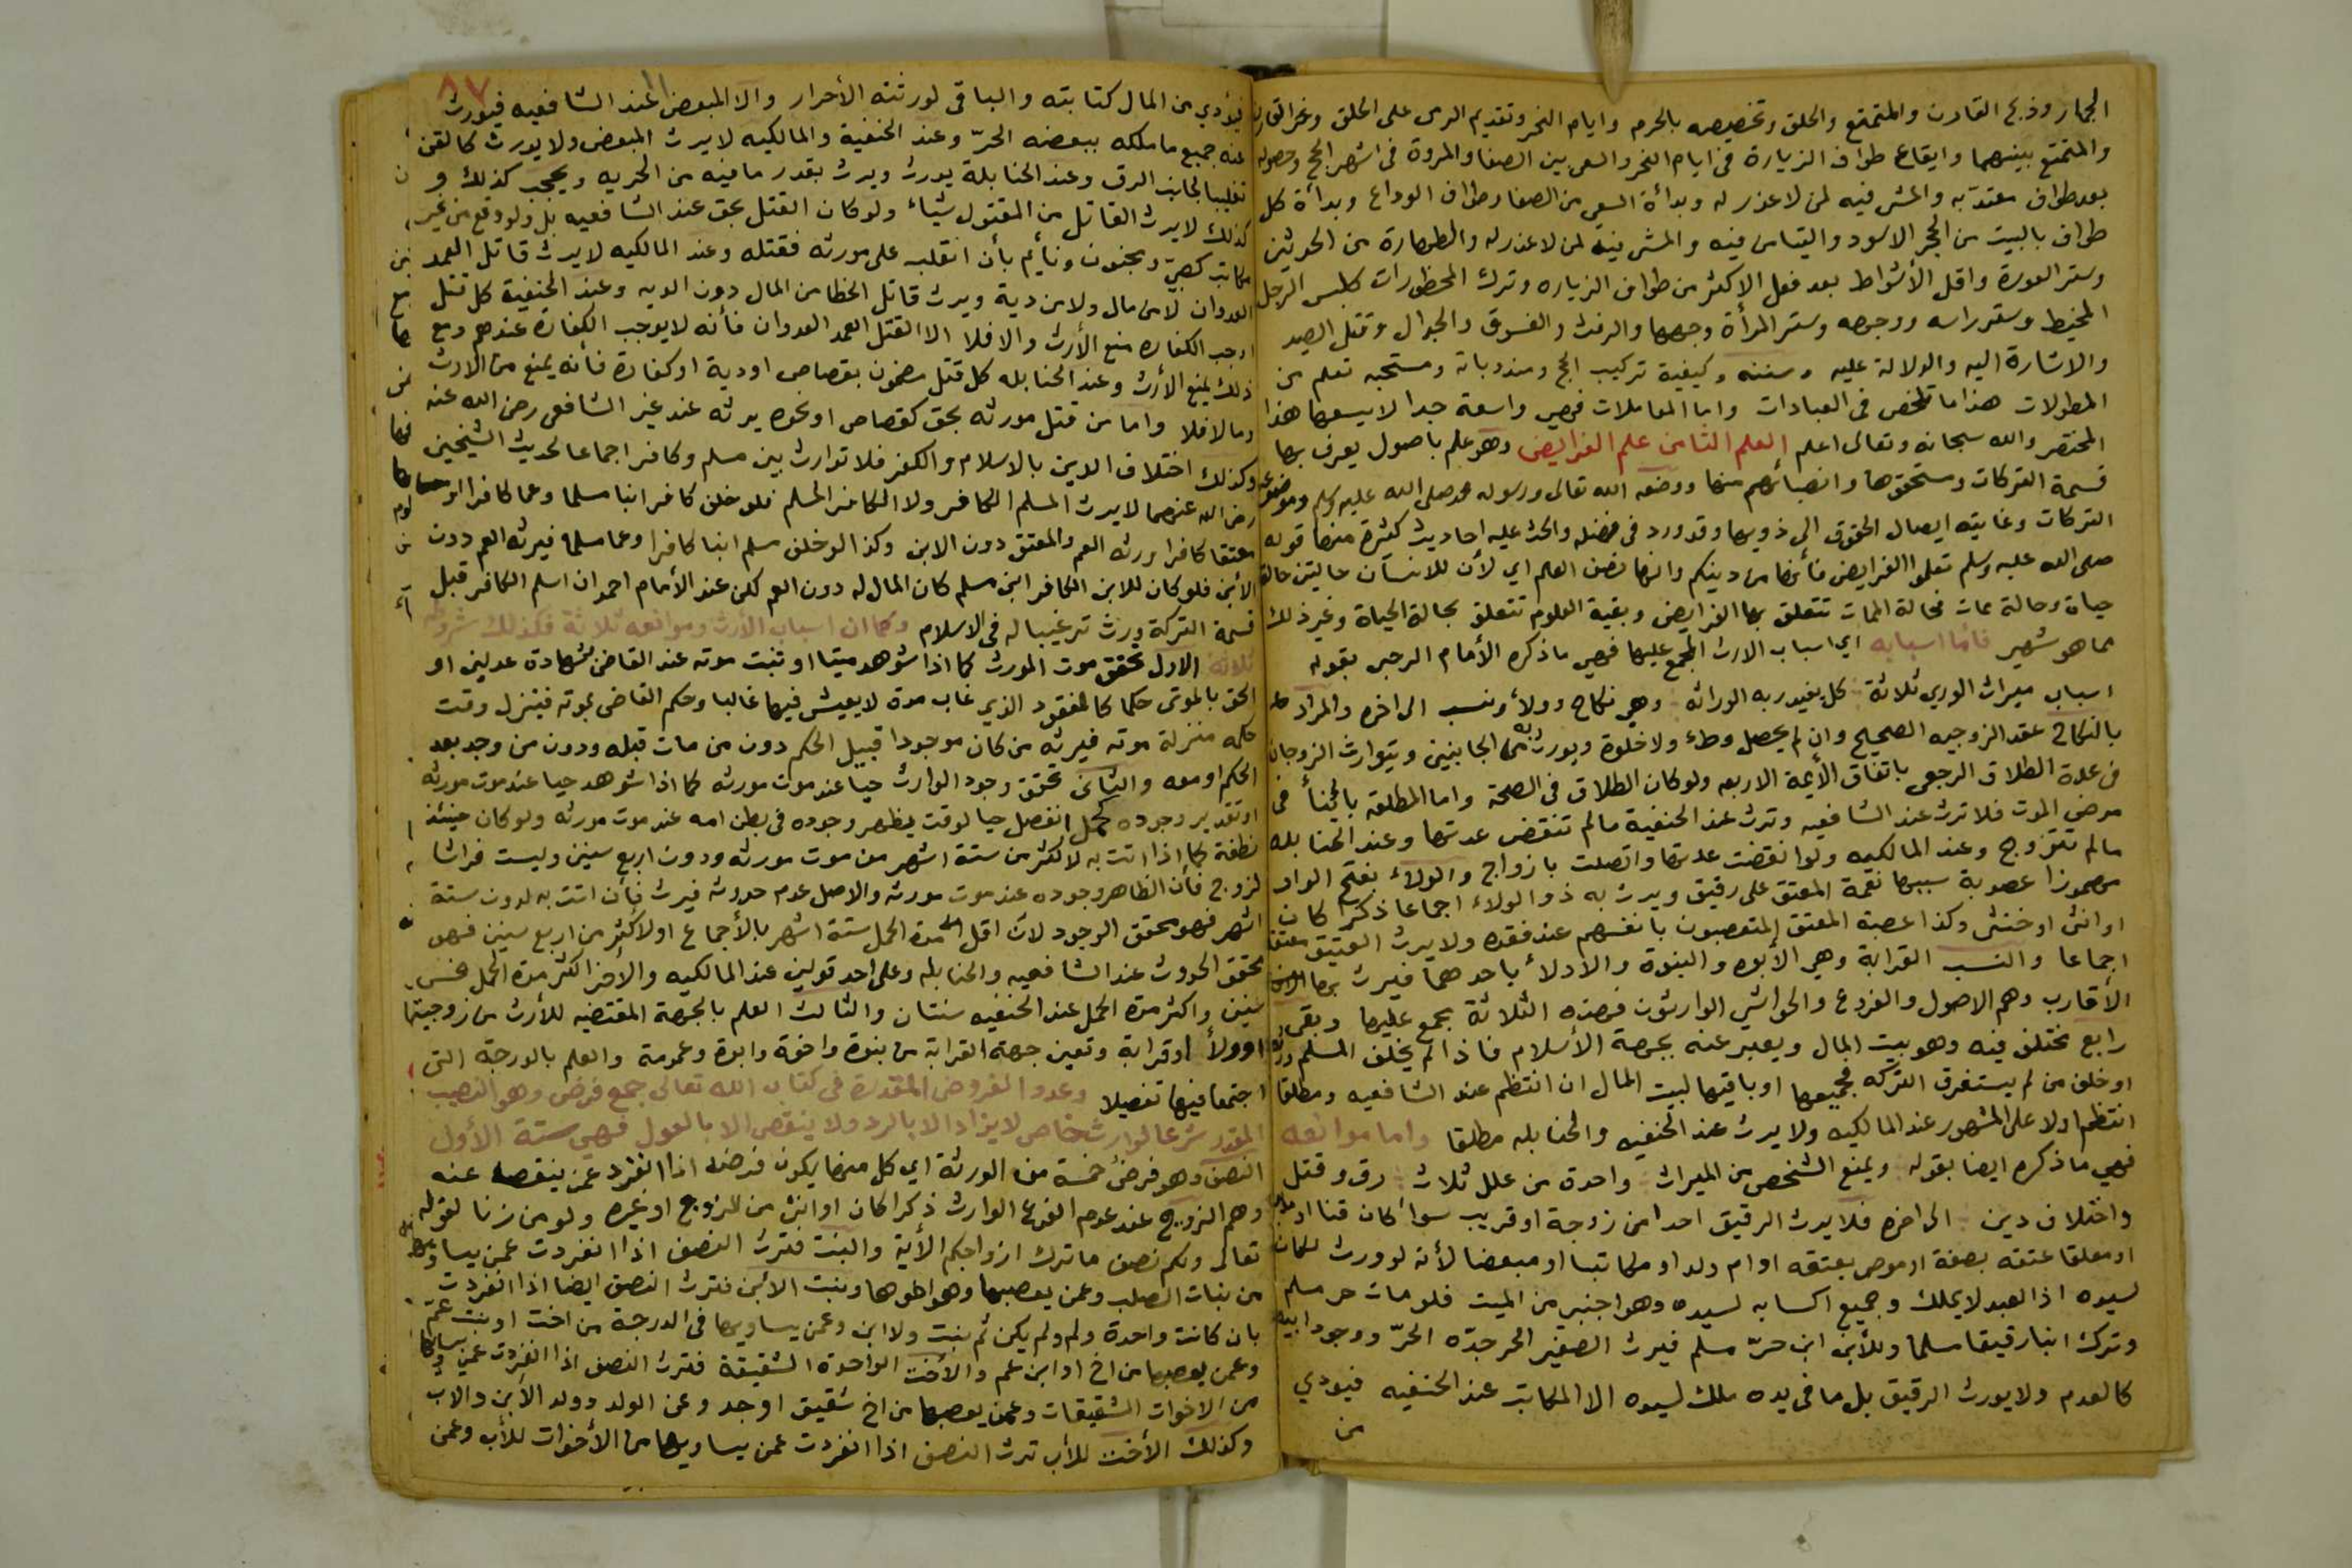 الجمار وذبح القارن والمتمتع والحلق وتخصيصه بالحرم وايام النحر وتقديم الرمى على الحلق ونحر القارن
والمتمتع بينهما وايقاع طواف الزيارة فى ايام النحر والسعى بين الصفا والمروة فى اشهر الحج وحصوله
بعد طواف معتد به والمشى فيه لمن لا عذر له وبدأة السعى من الصفا وطواف الوداع وبدأة كل
طواف بالبيت من الحجر الاسود والتيامن فيه والمشى فيه لمن لا عذر له والطهارة من الحدثين
وستر العورة واقل الأشواط بعد فعل الاكثر من طواف الزياره وترك المحظورات كلبس الرجل
المخيط وستر راسه ووجهه وستر المرأة وجهها والرفث والفسوق والجدال وقتل الصيد
والاشارة اليه والدلالة عليه وسننه وكيفية تركيب الحج ومندوباته ومستحبه تعلم من
المطولات هذا ما تلخص فى العبادات واما المعاملات فهى واسعة جدا لا يسعها هذا
المختصر والله سبحانه وتعالى اعلم العلم الثامن علم الفرايض وهو علم باصول يعرف بها
قسمة التركات ومستحقوها وانصبائهم منها ووضعه الله تعالى ورسوله محمد صلى الله عليه وسلم وموضوعه
التركات وغايته ايصال الحقوق الى ذويها وقد ورد فى فضله والحث عليه احاديث كثيرة منها قوله
صلى الله عليه وسلم تعلموا الفرايض فأنها من دينكم وانها نصف العلم اي لأن للانسان حالتين حالة
حياة وحالة ممات فحالة الممات تتعلق بها الفرايض وبقية العلوم تتعلق بحالة الحياة وغير ذلك
مما هو شهير فأما اسبابه اي اسباب الارث المجمع عليها فهى ما ذكره الأمام الرحبى بقوله
اسباب ميراث الورى ثلاثة كل يفيد ربه الوراثه وهى نكاح وولأ ونسب الى اخره والمراد
بالنكاح عقد الزوجيه الصحيح وان لم يحصل وطء ولا خلوة ويورث به من الجانبين ويتوارث الزوجان
فى عدة الطلاق الرجعى باتفاق الأيمة الاربعه ولو كان الطلاق فى الصحة واما المطلقة بائنأ فى
مرض الموت فلا ترث عند الشافعيه وترث عند الحنفية مالم تنقض عدتها وعند الحنابله
مالم تتزوج وعند المالكيه ولو انقضت عدتها واتصلت بازواج والولاء بفتح الواو
مهموزا عصوبة سببها نعمة المعتق على رقيق ويرث به ذو الولاء اجماعا ذكرا كان
او انثى او خنثى وكذا عصبة المعتق المتعصبون بانفسهم عند فقده ولا يرث العتيق معتقه
اجماعا والنسب القرابة وهى الأبوه والبنوة والأدلاء باحدهما فيرث بها
الأقارب وهم الاصول والفروع والحواشى الوارثون فهذه الثلاثة مجمع عليها وبقى
رابع مختلف فيه وهو بيت المال ويعبر عنه بجهة الأسلام فاذا لم يخلف المسلم ورثه
او خلف من لم يستغرق التركه فجميعها او باقيها لبيت المال ان انتظم عند الشافعيه ومطلقا
انتظم او لا على المشهور عند المالكيه ولا يرث عند الحنفيه والحنابله مطلقا واما موانعه
فهى ما ذكره ايضا بقوله ويمنع الشخص من الميراث واحدة من علل ثلاث رق وقتل
واختلاف دين الى اخره فلا يرث الرقيق احدا من زوجة او قريب سوأ كان قنا او مدبرا
او معلقا عتقه بصفة او موصى بعتقه او ام ولد او مكاتبا او مبعضا لأنه لو ورث لكان
لسيده اذ العبد لا يملك وجميع اكسابه لسيده وهو اجنبى من الميت فلو مات حر مسلم
وترك ابنا رقيقا مسلما وللأبن ابن حرّ مسلم فيرث الصغير الحر جدّه الحرّ ووجود ابيه
كالعدم ولا يورث الرقيق بل ما فى يده ملك لسيده الا المكاتب عند الحنفيه فيودي
من
٨٧
فيؤدي من المال كتابته والباقى لورثته الأحرار والا المبعض عند الشافعيه فيورث
عنه جميع ما ملكه ببعضه الحرّ وعند الحنفية والمالكيه لا يرث المبعض ولا يورث كالقن
تغليبا لجانب الرق وعند الحنابلة يورث ويرث بقدر ما فيه من الحريه ويحجب كذلك و
كذلك لا يرث القاتل من المقتول شياء ولو كان القتل بحق عند الشافعيه بل ولو وقع من غير
مكلف كصبى ومجنون ونأيم بأن انقلب على مورثه فقتله وعند المالكيه لا يرث قاتل العمد
العدوان لا من مال ولا من دية ويرث قاتل الخطا من المال دون الديه وعند الحنفية كل قتل
اوجب الكفاره منع الأرث والا فلا الا القتل العمد العدوان فأنه لا يوجب الكفارة عندهم ومع
ذلك يمنع الأرث وعند الحنابله كل قتل مضمون بقصاص او دية او كفارة فأنه يمنع من الارث
وما لا فلا واما من قتل مورثه بحق كقصاص او نحوه يرثه عند غير الشافعى رضى الله عنه
وكذلك اختلاف الدين بالاسلام والكفر فلا توارث بين مسلم وكافر اجماعا لحديث الشيخين
رضى الله عنهما لا يرث المسلم الكافر ولا الكافر المسلم فلو خلف كافر ابنا مسلما وعما كافرا او
معتقا كافرا ورثه العم والمعتق دون الابن وكذا لو خلف مسلم ابنا كافرا وعما مسلما فيرثه العم دون
الأبن فلو كان للابن الكافر ابن مسلم كان المال له دون العم لكن عند الأمام احمد ان اسلم الكافر قبل
قسمة التركة ورث ترغيبا له فى الاسلام وكما ان اسباب الأرث وموانعه ثلاثة فكذلك شروطه
ثلاثة الاول تحقق موت المورث كما اذا شوهد ميتا او تثبت موته عند القاضى بشهادة عدلين او
الحق بالموتى حكما كالمفقود الذي غاب مدة لا يعيش فيها غالبا وحكم القاضى بموته فينزل وقت
حكمه منزلة موته فيرثه من كان موجودا قبيل الحكم دون من مات قبله ودون من وجد بعد
الحكم او معه والثانى تحقق وجود الوارث حيا عند موت مورثه كما اذا شوهد حيا عند موت مورثه
او تقدير وجوده كحمل انفصل حيا لوقت يظهر وجوده فى بطن امه عند موت مورثه ولو كان حينئذ
نطفة كما اذا اتت به لأكثر من ستة اشهر من موت مورثه ودون اربع سنين وليست فراشا
لزوج فأن الظاهر وجوده عند موت مورثه والاصل عدم حدوثه فيرث فأن اتت به لدون ستة
اشهر فهو محقق الوجود لان اقل مدة الحمل ستة اشهر بالأجماع او لأكثر من اربع سنين فهو
محقق الحدوث عند الشافعيه والحنابله وعلى احد قولين عند المالكيه والأخر اكثر مدة الحمل خمس
سنين واكثر مدة الحمل عند الحنفيه سنتان والثالث العلم بالجهة المقتضيه للأرث من زوجية
او ولأ او قرابة وتعين جهة القرابة من بنوة واخوة وابوة وعمومة والعلم بالدرجة التى
اجتمعا فيها تفصيلا وعدد الفروض المقدرة فى كتاب الله تعالى جمع فرض وهو النصيب
المقدر شرعا لوارث خاص لا يزاد الا بالرد ولا ينقص الا بالعول فهى ستة الأول
النصف وهو فرض خمسة من الورثة اي كل منها يكون فرضه اذا انفرد عمن ينقصه عنه
وهم الزوج عند عدم الفرع الوارث ذكرا كان او انثى من الزوج او غيره ولو من زنا لقوله
تعالى ولكم نصف ما ترك ازواجكم الأية والبنت فترث النصف اذا انفردت عمن يساويها
من بنات الصلب وعمن يعصبها وهو اخوها وبنت الأبن فترث النصف ايضا اذا انفردت
بان كانت واحدة ولم يكن ثم بنت ولا ابن وعمن يساويها فى الدرجة من اخت او بنت عم
وعمن يعصبها من اخ او ابن عم والأخت الواحدة الشقيقة فترث النصف اذا انفردت عمن يساويها
من الاخوات الشقيقات وعمن يعصبها من اخ شقيق او جد وعن الولد وولد الأبن والاب
وكذلك الأخت للأب ترث النصف اذا انفردت عمن يساويها من الأخوات للأب وعمن